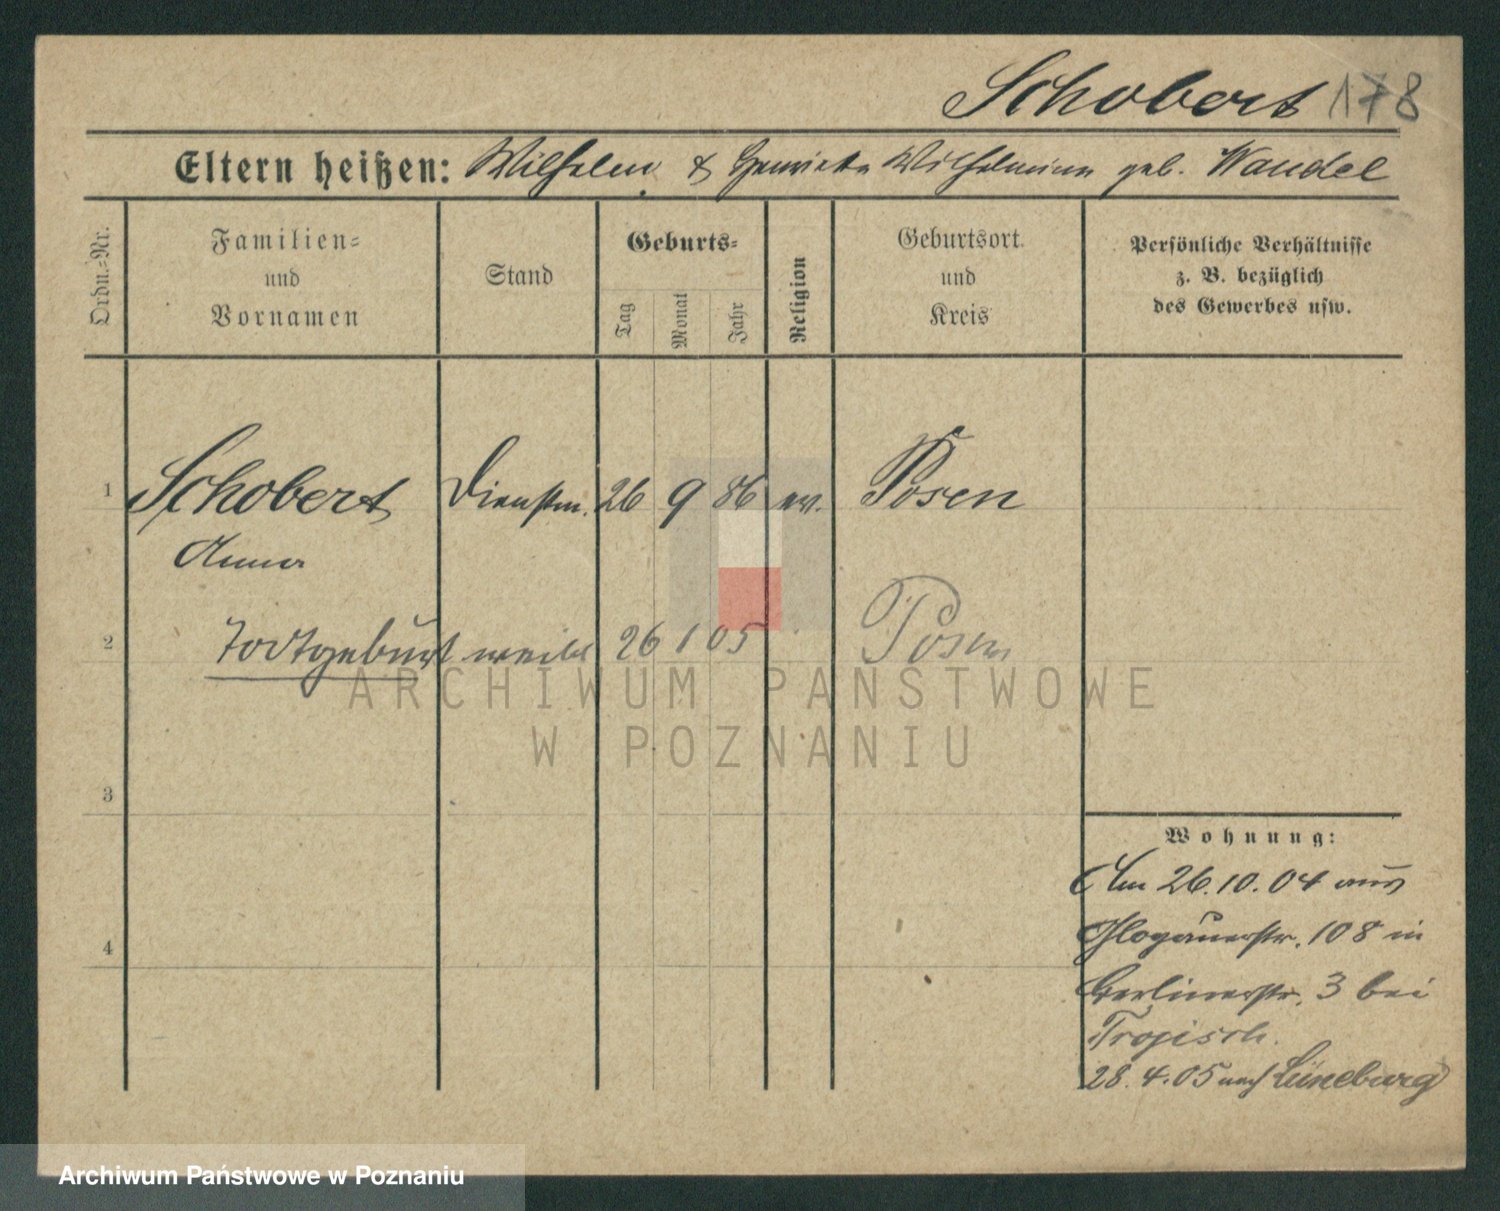 Schobert 178
Eltern heißen: Wilhelm & Henriette Wilhelmine geb. Wandel
Ordn.=Nr.
Familien=
und
Vornamen
Stand
Geburts=
Tag
Monat
Jahr
Religion
Geburtsort
und
Kreis
Persönliche Verhältnisse
z. B. bezüglich
des Gewerbes usw.
1 Schobert Dienstm. 26 9 86 ev. Posen
Anna
2 Todtgeburt weibl 26 1 05 Posen
3
4
Wohnung:
Am 26.10.04 aus
Glogauerstr. 108 in
Berlinerstr. 3 bei
28.4.05 nach Lüneburg
ARCHIWUM PAŃSTWOWE
W POZNANIU
Archiwum Państwowe w Poznaniu